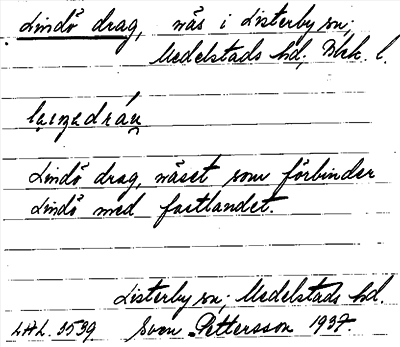 Lindö drag, näs i Listerby sn;
Medelstads hd; Blek. l.
Lindö drag, näset som förbinder
Lindö med fastlandet.
Listerby sn; Medelstads hd.
LAL. 3539 Sven Pettersson 1937.